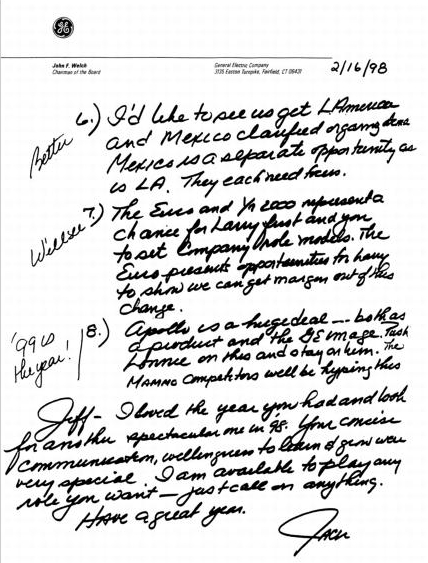 GE
John F. Welch
Chairman of the Board
General Electric Company
3135 Easton Turnpike, Fairfield, CT 06431
2/16/98
6.) I'd like to see us get L America
and Mexico clarified
Better
Mexico is a separate opportunity as
is LA. They each need focus.
7.) The Euro and Yr 2000 represent a
chance for Larry first and you
Will see
to set Company role models. The
Euro presents opportunities for Larry
to show we can get margin out of this
change.
8.) Apollo is a huge deal -- both as
'99 is
the year!
a product and the GE image. Push
Lonnie on this and stay on him. The
Mammo competitors will be hyping this
Jeff - I loved the year you had and look
for another spectacular one in 98. Your concise
communication, willingness to learn & grow were
very special. I am available to play any
role you want — just call on anything.
Have a great year.
Jack